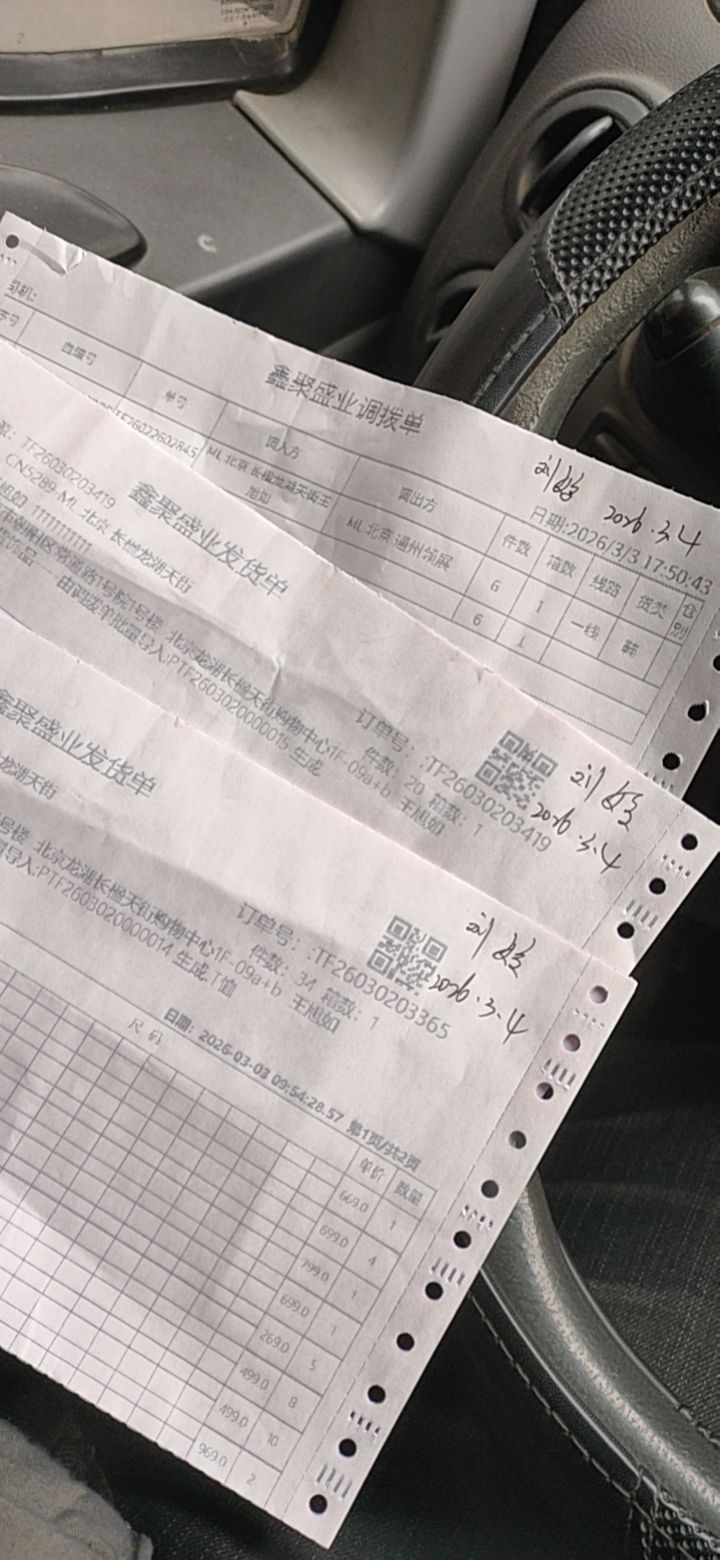 鑫聚盛业调拨单
司机:
日期:2026/3/3 17:50:43
2026.3.4
序号 自编号 单号 调入方 调出方 件数 箱数 线路 货类 仓别
TF26022602845 ML 北京 长楹龙湖天街王旭如 ML 北京 通州邻展 6 1 一线 韩
6 1
鑫聚盛业发货单
TF26030203419
订单号: :TF26030203419
2026.3.4
CN5289-ML 北京 长楹龙湖天街
件数: 20 箱数: 1
旭如 1111111111
常通路1号院1号楼 北京龙湖长楹天街购物中心1F-09a+b 王旭如
饰品 由调拨单批量导入:PTF2603020000015 生成
鑫聚盛业发货单
订单号: :TF26030203365
2026.3.4
龙湖天街
件数: 34 箱数: 1
号楼 北京龙湖长楹天街购物中心1F-09a+b 王旭如
导入:PTF2603020000014 生成.T值
日期: 2026-03-03 09:54:28.57 第1页/共2页
尺码 单价 数量
669.0 1
699.0 4
799.0 1
699.0 1
269.0 5
499.0 8
499.0 10
969.0 2